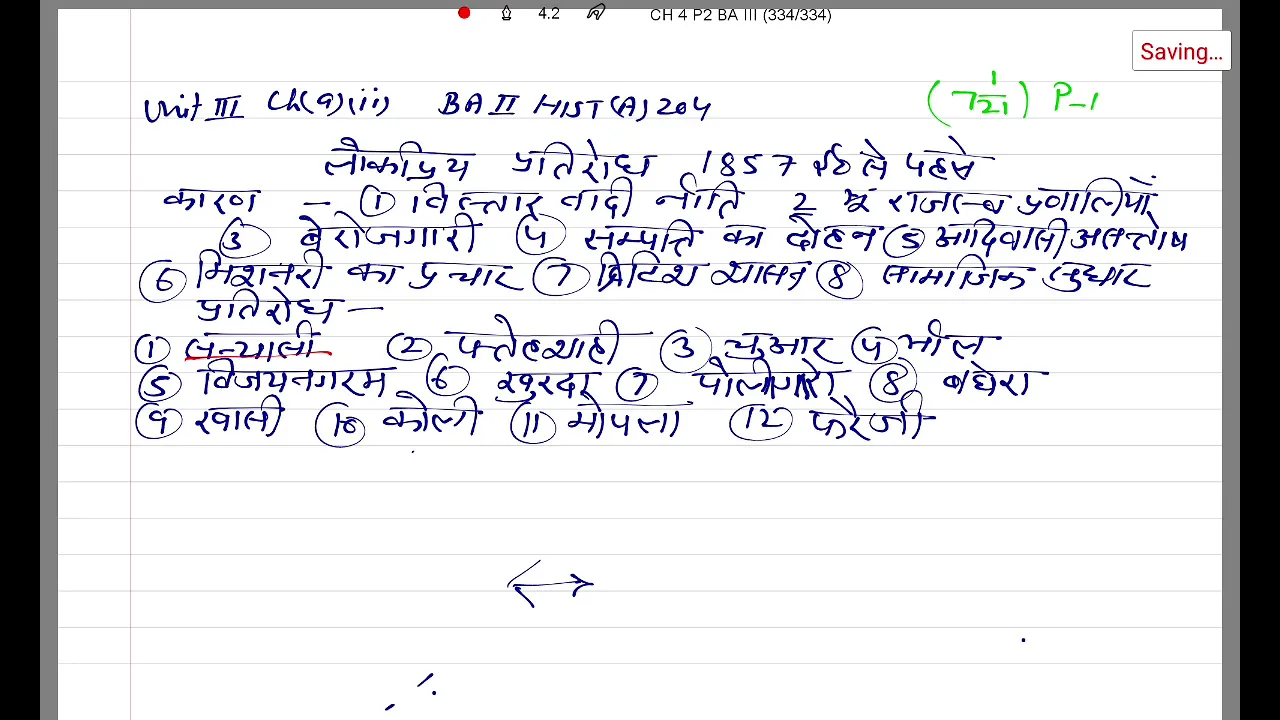 4.2 CH 4 P2 BA III (334/334)
Saving...
Unit III Ch(9)(ii) BA II HIST(A)204 (7 1/21) P-1
लोकप्रिय प्रतिरोध 1857 ई० से पहले
कारण - ① विस्तारवादी नीति 2 भू राजस्व प्रणालियाँ
③ बेरोजगारी ④ सम्पत्ति का दोहन ⑤ आदिवासी असन्तोष
⑥ मिशनरी का प्रचार ⑦ ब्रिटिश शासन ⑧ सामाजिक सुधार
प्रतिरोध -
① सन्यासी ② फतेहशाही ③ चुआर ④ भील
⑤ विजयनगरम ⑥ खुरदा ⑦ पोलीगारो ⑧ बघेरा
⑨ खासी ⑩ कोली ⑪ मोपला ⑫ फरैजी